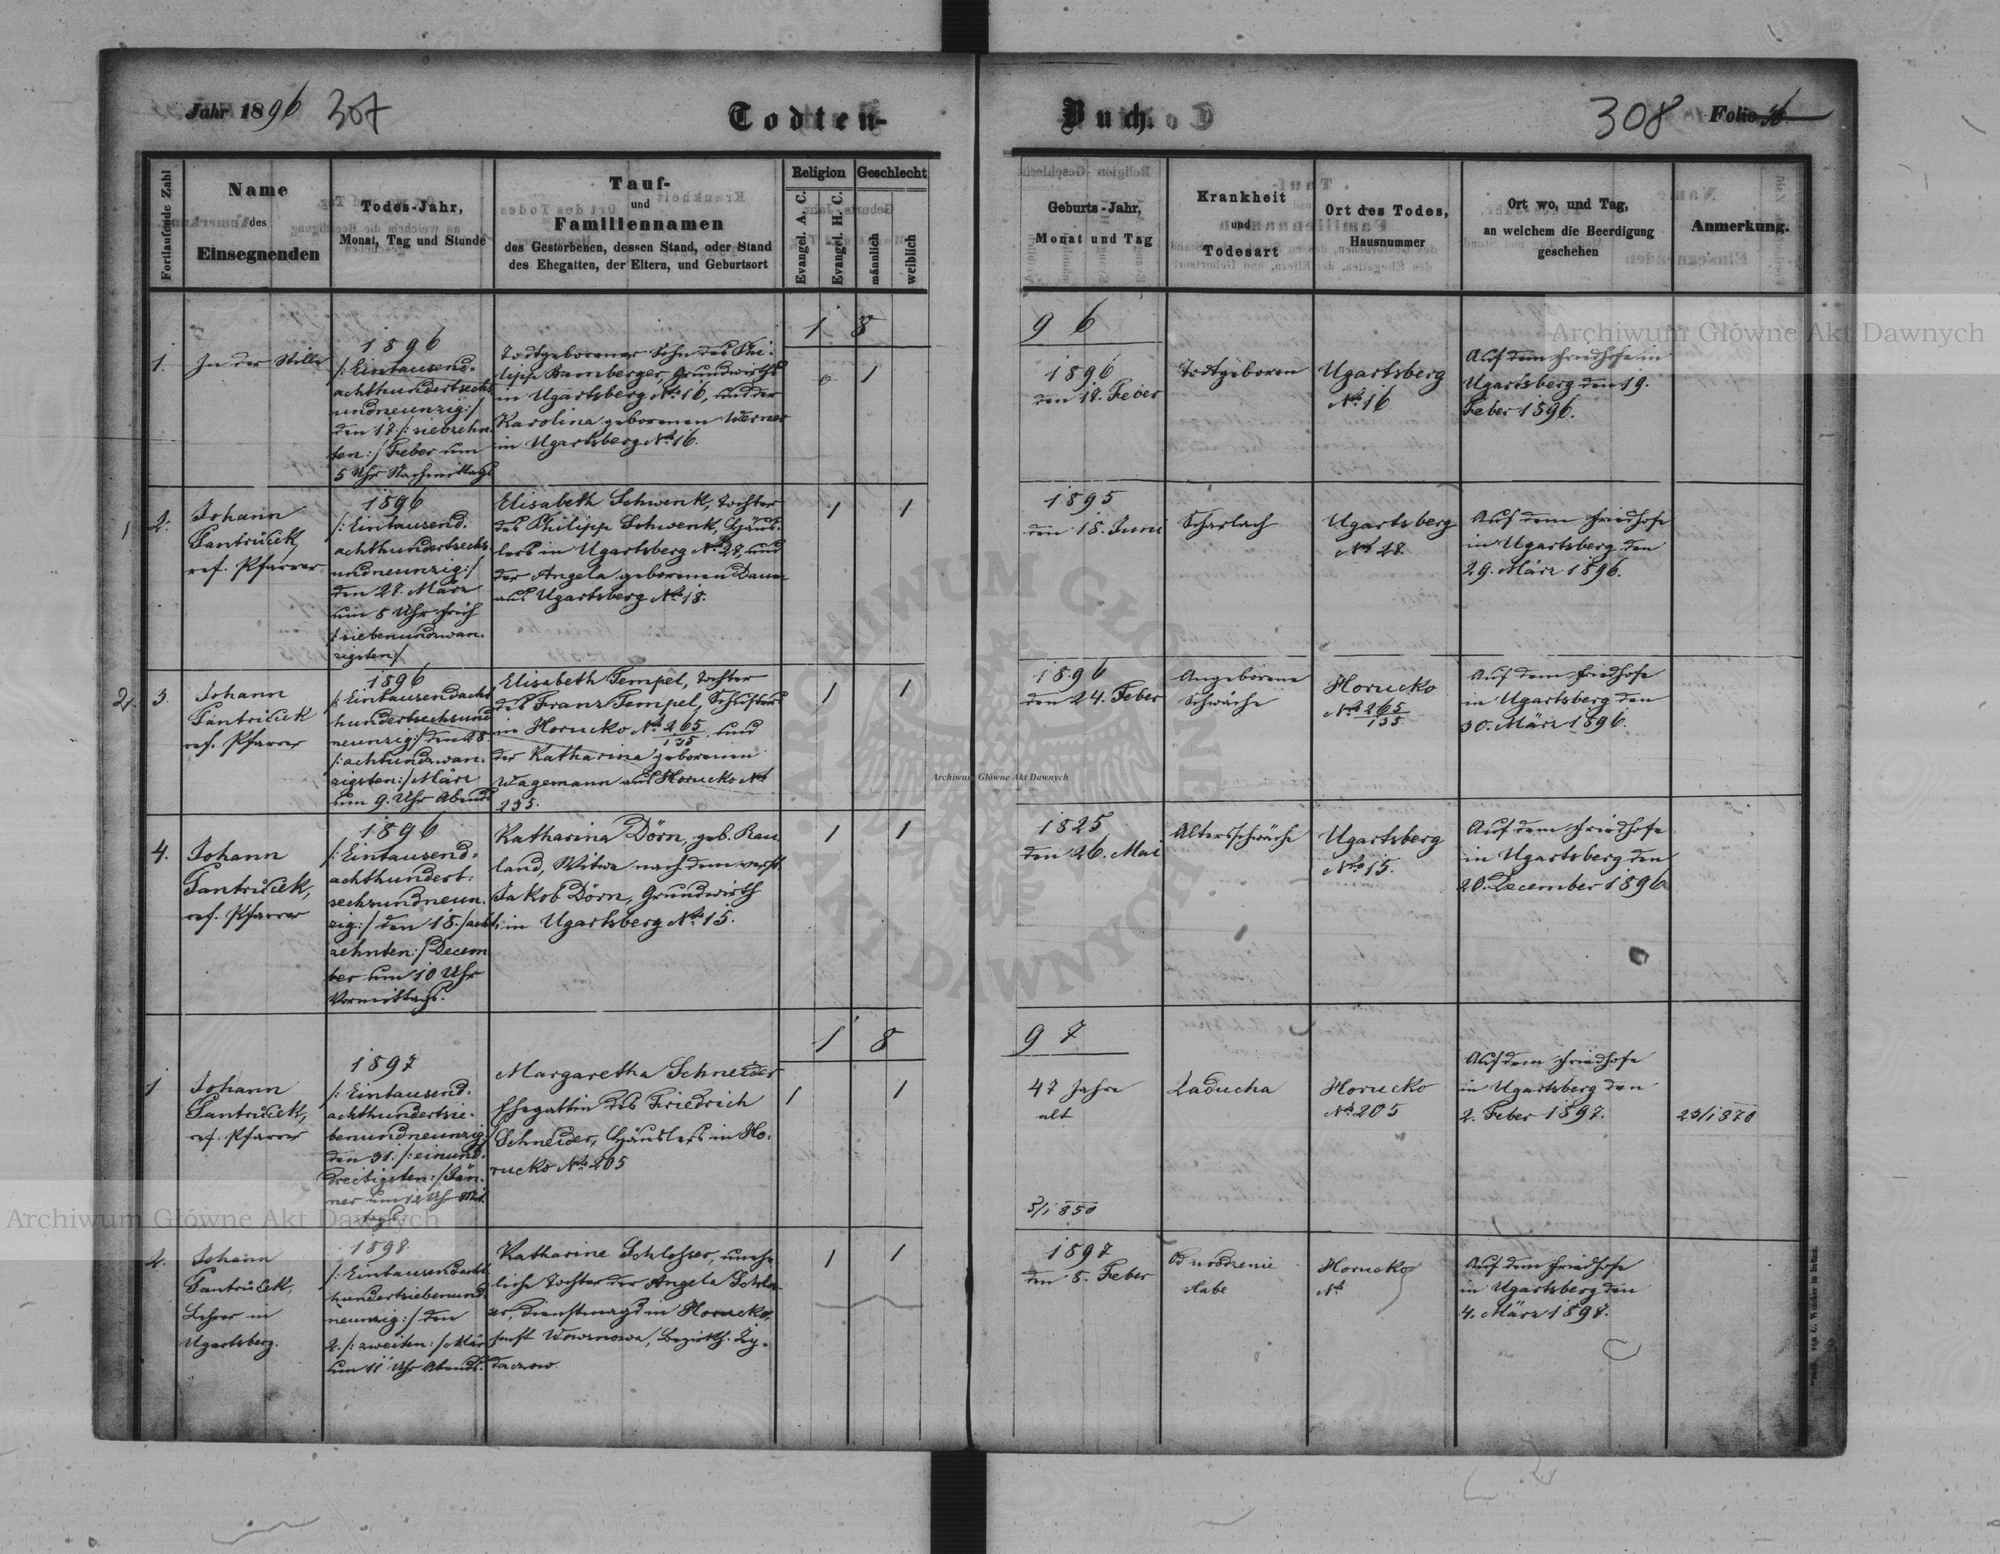 Jahr 1896 307
Todten-
Buch.
308 Folio
Fortlaufende Zahl
Name
des
Einsegnenden
Todes-Jahr,
Monat, Tag und Stunde
Tauf-
und
Familiennamen
des Gestorbenen, dessen Stand, oder Stand
des Ehegatten, der Eltern, und Geburtsort
Religion
Evangel. A. C.
Evangel. H. C.
Geschlecht
männlich
weiblich
Geburts-Jahr,
Monat und Tag
Krankheit
und
Todesart
Ort des Todes,
Hausnummer
Ort wo, und Tag,
an welchem die Beerdigung
geschehen
Anmerkung.
1 8
9 6
1.
In der Stille
1896
/:Eintausend-
achthundertsechs
undneunzig:/
den 17. /:siebzehn
ten:/ Feber um
5 Uhr Nachmittags
Todtgeborener Sohn des Phi-
lipp Bamberger, Grundwirths
in Ugartsberg No 16, und der
Karolina geborenen Werner
in Ugartsberg No 16.
1
1896
den 17. Feber
Todtgeboren
Ugartsberg
No 16
Auf dem Friedhofe in
Ugartsberg den 19.
Feber 1896.
1 2.
Johann
ref. Pfarrer
1896
/:Eintausend-
achthundertsechs
undneunzig:/
den 27. März
um 5 Uhr früh
/:siebenundzwan-
zigsten:/
Elisabeth Schwenk, Tochter
des Philipp Schwenk, Häus-
lers in Ugartsberg No 28, und
der Angela geborenen Daum
aus Ugartsberg No 18.
1 1
1895
den 18. Juni
Scharlach
Ugartsberg
No 28.
Auf dem Friedhofe
in Ugartsberg den
29. März 1896.
2 3.
Johann
ref. Pfarrer
1896
/:Eintausendacht
hundertsechsund
neunzig:/ den 28
/:achtundzwan-
zigsten:/ März
um 9. Uhr Abends
Elisabeth Tempel, Tochter
des Franz Tempel, Schusters
in Horucko No 265/135, und
der Katharina geborenen
Wagemann aus Horucko No
235.
1 1
1896
den 24. Feber
Angeborene
Schwäche
Horucko
No 265/135
Auf dem Friedhofe
in Ugartsberg den
30. März 1896.
4.
Johann
ref. Pfarrer
1896
/:Eintausend-
achthundert-
sechsundneun-
zig:/ den 18. /:acht
zehnten:/ Decem
ber um 10 Uhr
Vormittags.
Katharina Dörn, geb. Rau
land, Witwe nach dem verst.
Jakob Dörn, Grundwirth
in Ugartsberg No 15.
1 1
1825
den 26. Mai
Altersschwäche
Ugartsberg
No 15.
Auf dem Friedhofe
in Ugartsberg den
20. December 1896
1 8
9 7
1
Johann
ref. Pfarrer
1897
/:Eintausend-
achthundertsie-
benundneunzig:/
den 31. /:einund-
dreißigsten:/ Jän-
ner um 12 Uhr Mit-
tags
Margaretha Schneider
Ehegattin des Friedrich
Schneider, Häuslers in Ho-
rucko No 205
1 1
47 Jahre
alt
5/1 850
Zaducha
Horucko
No 205
Auf dem Friedhofe
in Ugartsberg den
2. Feber 1897.
23/1870
2.
Johann
Lehrer in
Ugartsberg.
1897.
/:Eintausendacht
hundertsiebenund
neunzig:/ den
2. /:zweiten:/ März
um 11 Uhr Abends.
Katharine Schlosser, unehe
liche Tochter der Angela Schlos-
ser, Dienstmagd in Horucko,
1 1
1897
den 8. Feber
słabe
Horucko
No
Auf dem Friedhofe
in Ugartsberg den
4. März 1897.
Archiwum Główne Akt Dawnych
Archiwum Główne Akt Dawnych
Archiwum Główne Akt Dawnych
ARCHIWUM GŁÓWNE
AKT DAWNYCH